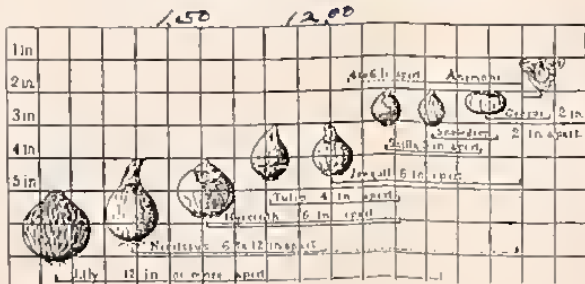 1.50 12.00
1 in
2 in
3 in
4 in
5 in
4 to 6 in apart Anemone
Crocus 2 in
Snowdrop 2 in apart
Scilla 3 in apart
Jonquil 6 in apart
Tulip 4 in apart
Hyacinth 6 in apart
Narcissus 6 to 12 in apart
Lily 12 in or more apart